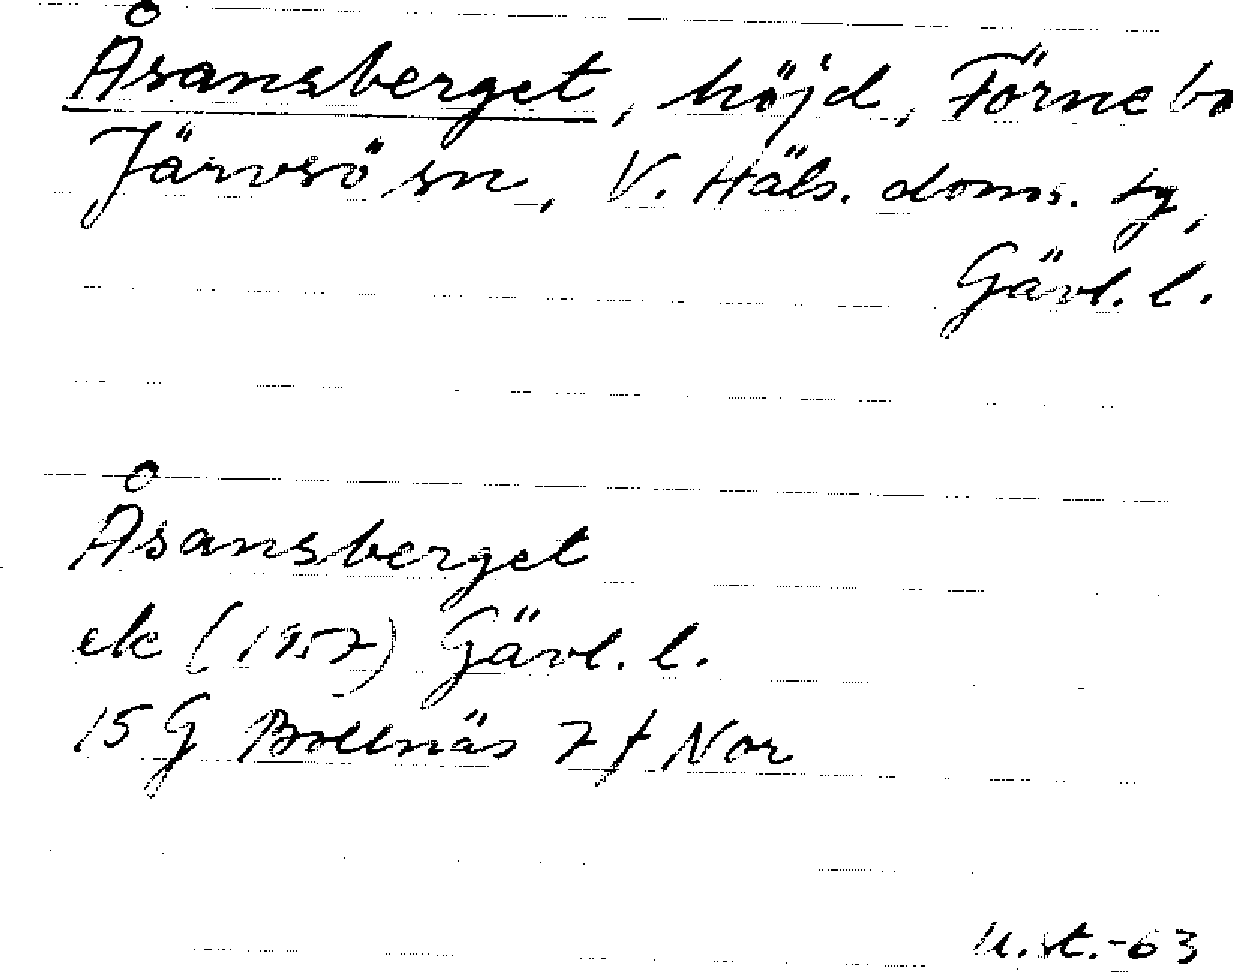 Åsansberget, höjd, Förnebo
Järvsö sn, V. Häls. doms. tg,
Gävl. l.
Åsansberget
ek (1957) Gävl. l.
15 G Bollnäs 7 f Nor
U.st.-63